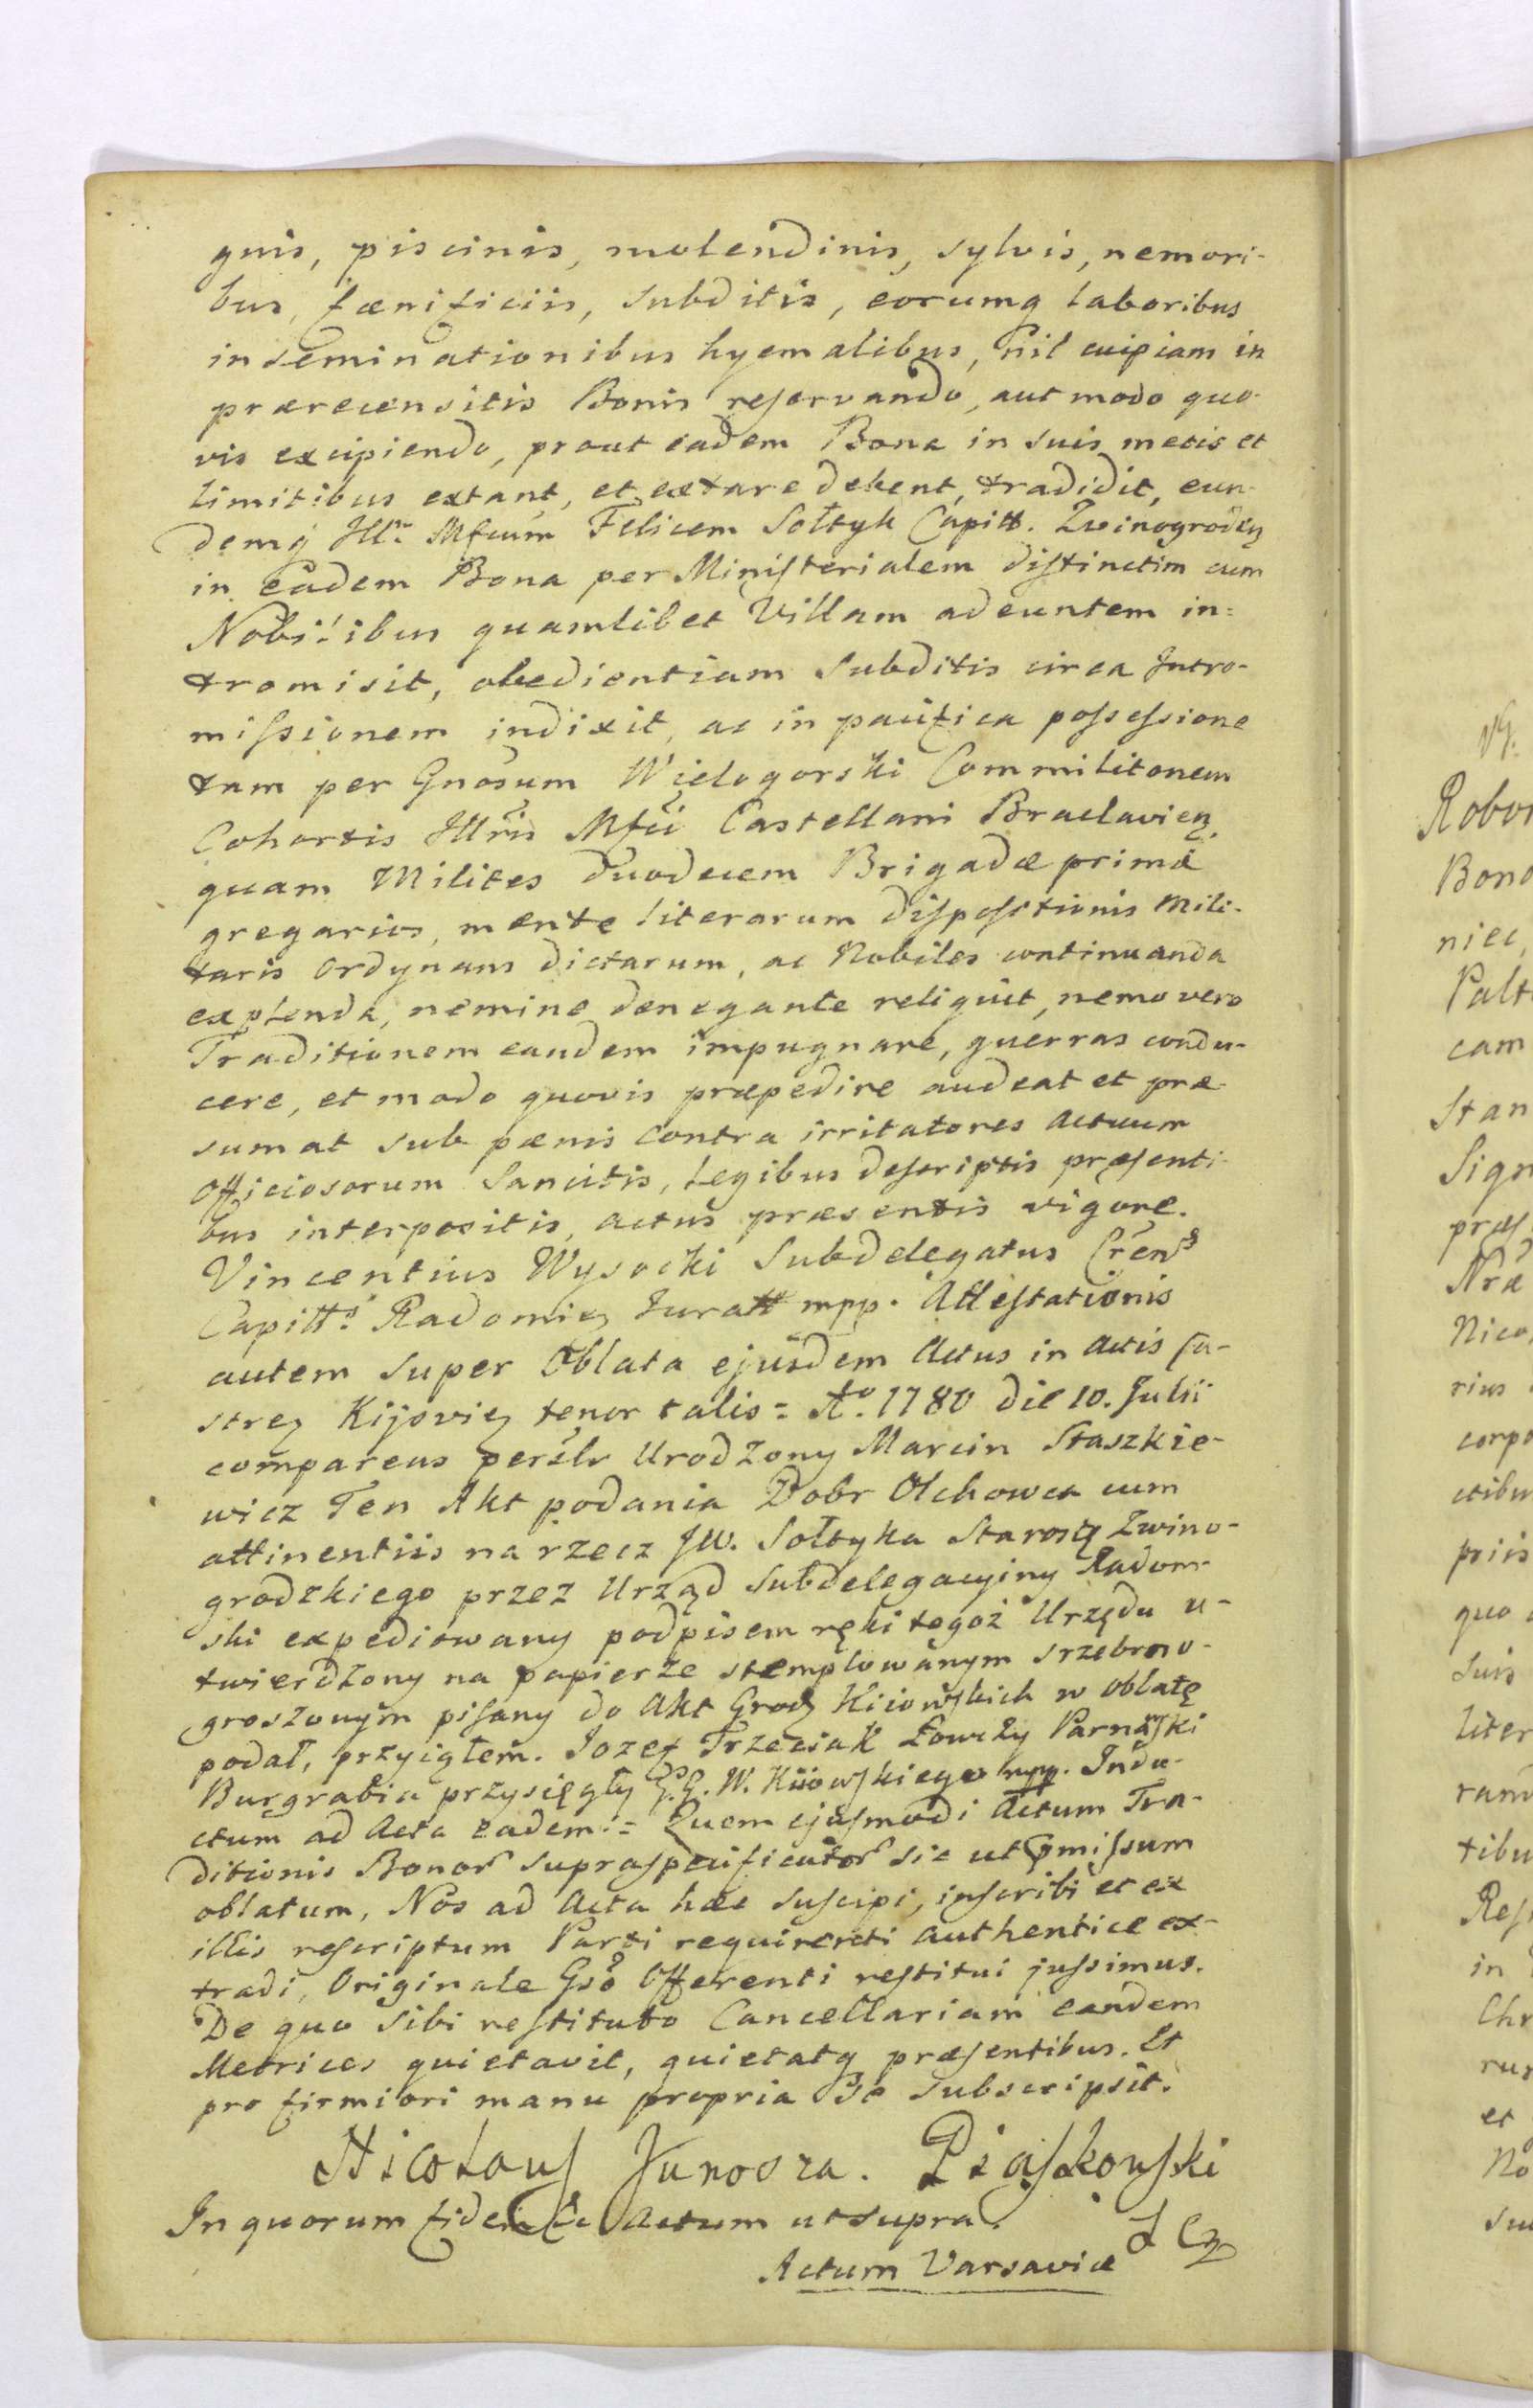 gnis, piscinis, molendinis, sylvis, nemori-
bus, fœnificiis, Subditis, eorumq laboribus
inseminationibus hyemalibus, nil cuipiam in
prærecensitis Bonis reservando, aut modo quo-
vis excipiendo, prout eadem Bona in suis metis et
limitibus extant, et extare debent, tradidit, eun-
demq Illm Mfcum Felicem Sołtyk Capitt. Zwinogrodeń
in eadem Bona per Ministerialem distinctim cum
Nobilibus quamlibet Villam adeuntem in=
tromisit, obedientiam Subditis circa Intro-
missionem indixit, ac in pacifica possessione
tam per Gnosum Wielogorski Commilitonem
Cohortis Illris Mfci Castellani Braclavień
quam Milites duodecem Brigadæ primæ
gregarios, mente literarum dispositionis Mili-
taris Ordynans dictarum, ac Nobiles continuanda
explenda, nemine denegante reliquit, nemo vero
Traditionem eandem impugnare, guerras condu-
cere, et modo quovis præpedire audeat et præ-
sumat sub pænis contra irritatores actuum
Officiosorum Sancitis, Legibus descriptis præsenti-
bus interpositis, actus præsentis vigore.
Vincentius Wysocki Subdelegatus Crens
Capitts Radomień Juratt mpp. Attestationis
autem super Oblata ejusdem Actus in Actis Ca-
streń Kijovień tenor talis = Ao. 1780 die 10. Julii
comparens persłr Urodzony Marcin Staszkie-
wicz Ten Akt podania Dobr Olchowca cum
attinentiis na rzecz JW. Sołtyka Starosty Zwino-
grodzkiego przez Urząd Subdelegacyiny Radom-
ski expediowany podpisem ręki tegoż Urzędu u-
twierdzony na papierze stemplowanym srzebrno-
groszowym pisany do Akt Grodz Kiiowskich w oblatę
podał, przyiąłem. Jozef Trzeciak Łowczy Parnawski
Burgrabia przysięgły G.G. W. Kiiowskiego mpp. Indu-
ctum ad Acta eadem. = Quem ejusmodi Actum Tra-
ditionis Bonor supraspecificator sic ut pmissum
oblatum, Nos ad Acta hæc suscipi, inscribi et ex
illis rescriptum Parti requirenti authentice ex-
tradi, Originale Gso Offerenti restitui jussimus.
De quo sibi restituto Cancellariam eandem
Metrices quietavit, quietatq præsentibus. Et
pro firmiori manu propria se subscripsit.
Nicolaus Junosza. Piaskowski
In quorum fidem Actum ut supra.
Actum Varsaviæ